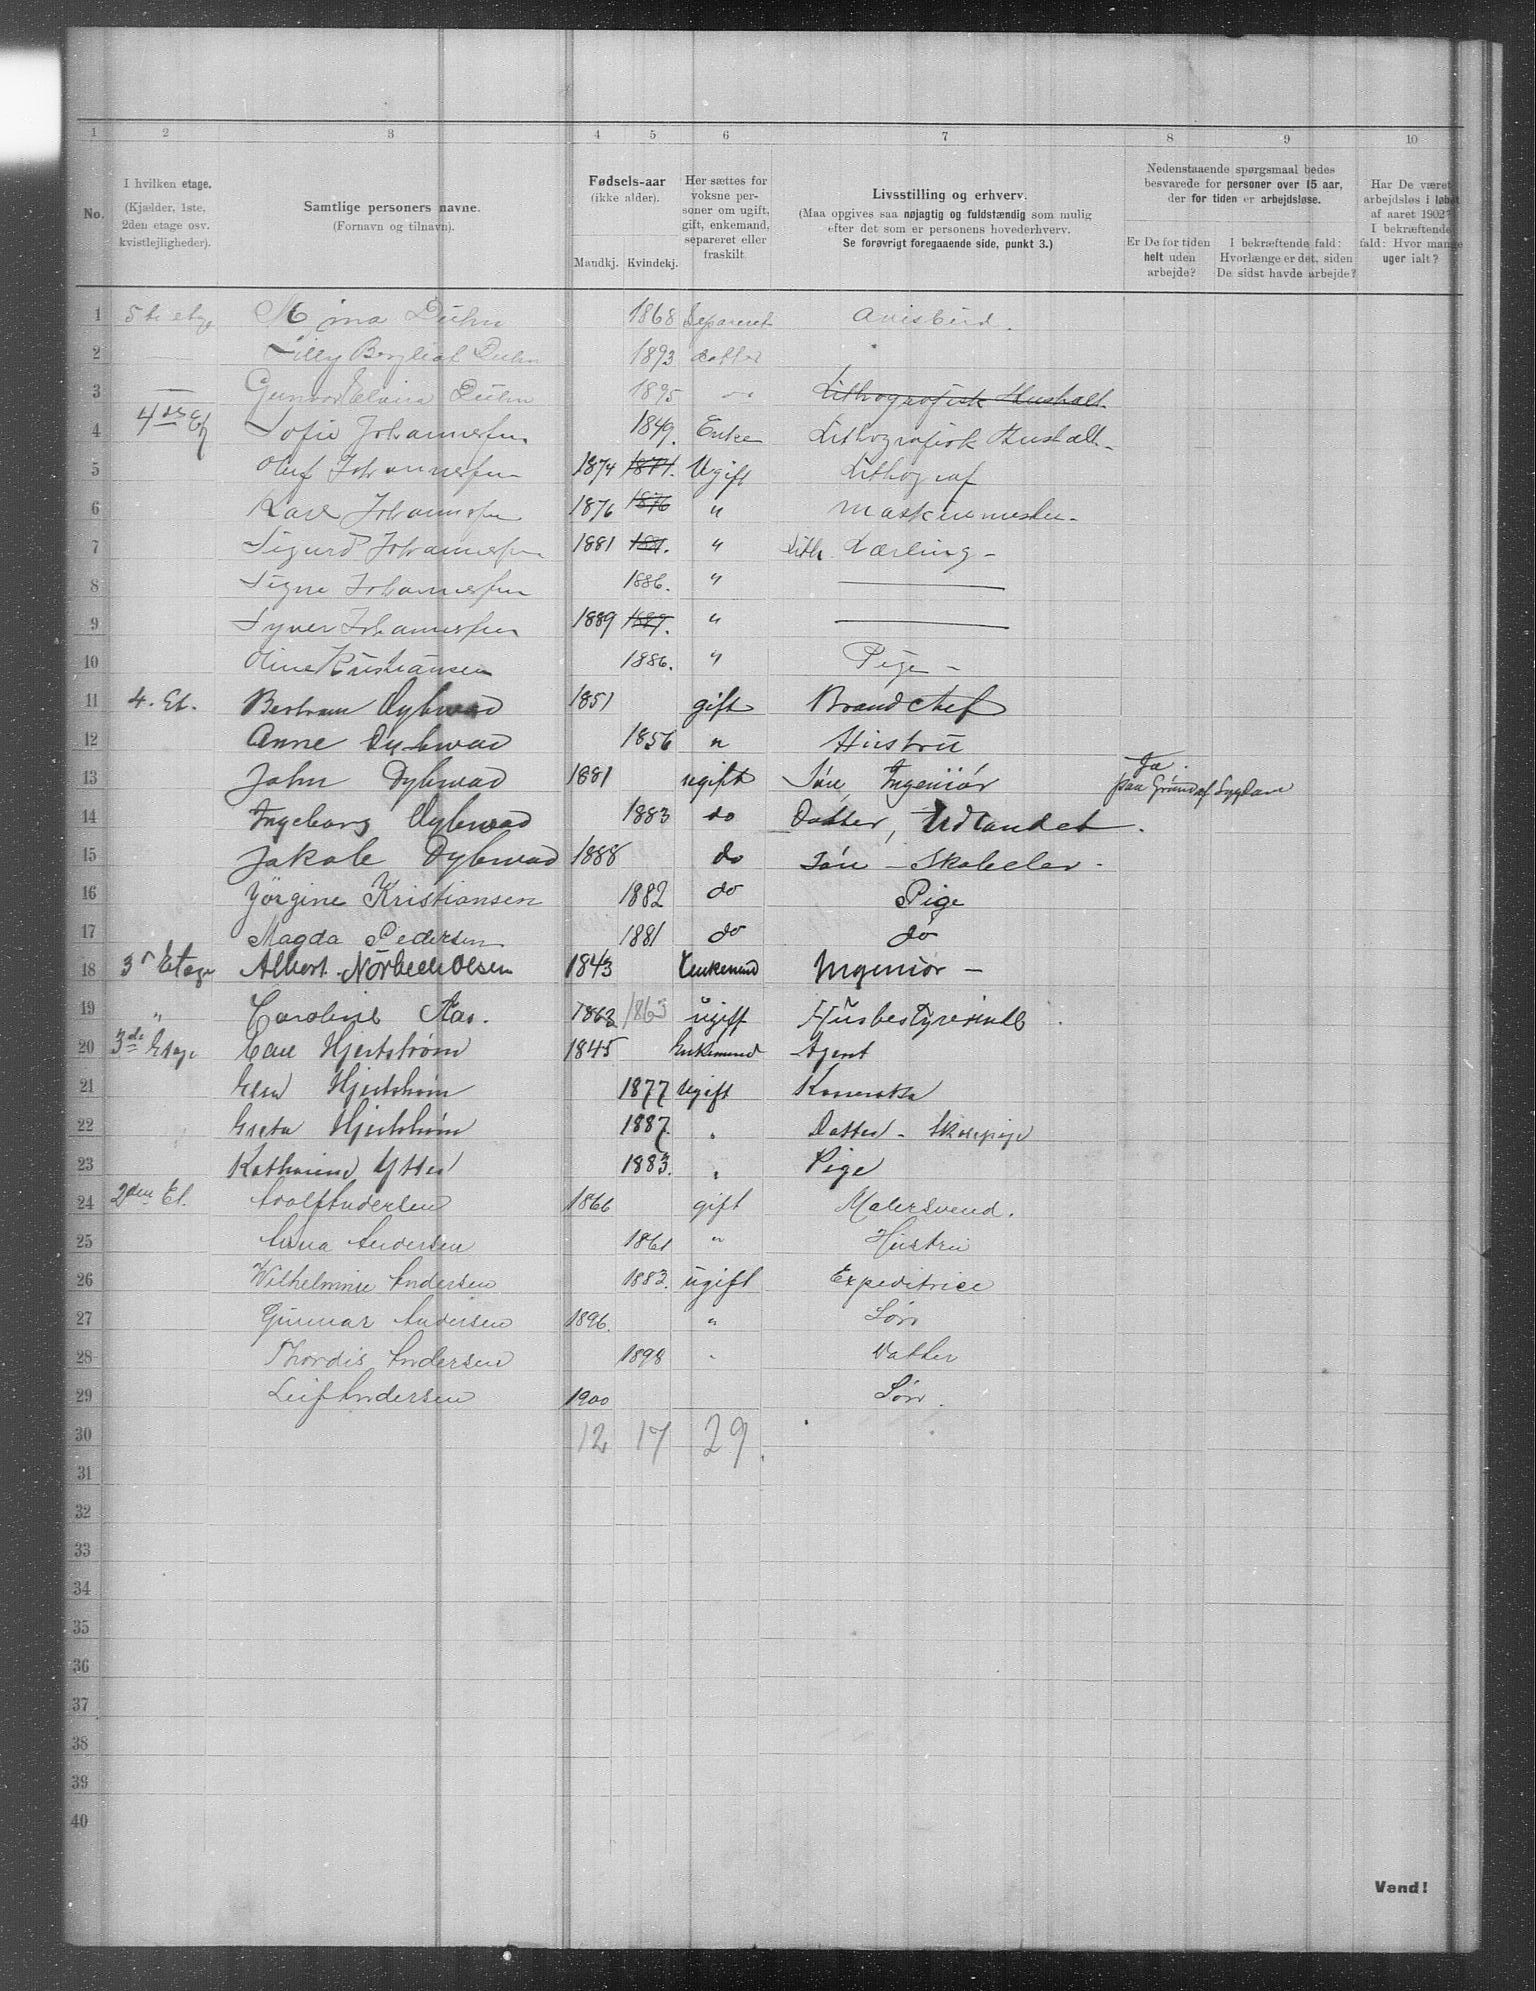 1 2 3 4 5 6 7 8 9 10
No.
I hvilken etage.
(Kjælder, 1ste,
2den etage osv.
kvistlejligheder).
Samtlige personers navne.
(Fornavn og tilnavn).
Fødsels-aar
(ikke alder).
Mandkj. Kvindekj.
Her sættes for
voksne per-
soner om ugift,
gift, enkemand,
separeret eller
fraskilt.
Livsstilling og erhverv.
(Maa opgives saa nøjagtig og fuldstændig som mulig
efter det som er personens hovederhverv.
Se forøvrigt foregaaende side, punkt 3.)
Nedenstaaende spørgsmaal bedes
besvarede for personer over 15 aar,
der for tiden er arbejdsløse.
Er De for tiden
helt uden
arbejde?
I bekræftende fald:
Hvorlænge er det, siden
De sidst havde arbejde?
Har De været
arbejdsløs i løbet
af aaret 1902?
I bekræftende
fald: Hvor mange
uger ialt?
1 5te etag Mina Duhn 1868 Separeret Avisbud.
2 Lilly Bergliot Duhn 1893 datter
3 Gunvor Elvira Duhn 1895 Lithografisk Hushalt
4 4de Et Sofie Johannesen 1849. Enke Lithografisk Anstalt
5 Oluf Johannesen 1874 1874. Ugift Lithograf
6 Karl Johannesen 1876 1876 " Maskinmester
7 Sigurd Johannesen 1881 1881. " Lith. Lærling -
8 Signe Johannesen 1886. "
9 Syver Johannesen 1889 1889. "
10 Oline Kristiansen 1886. " Pige -
11 4. Et. Bertram Dybwad 1851 gift Brandchef
12 Anne Dybwad 1856 " Hustru
13 John Dybwad 1881 ugift Søn, Ingeniør Ja. paa Grund af Sygdom
14 Ingeborg Dybwad 1883 do Datter, Udlandet.
15 Jakob Dybwad 1888 do Søn - Skoleelev -
16 Jörgine Kristiansen 1882 do Pige
17 Magda Pedersen 1881 do do
18 3 Etage Albert Norbech Olsen 1843 Enkemand Ingeniør -
19 " Caroline Aas. 1863 1863 ugift Husbestyrerinde
20 3de Etage Carl Hjertstrøm 1845 Enkemand Agent
21 Elsa Hjertstrøm 1877 Ugift
22 Greta Hjertstrøm 1887. " Datter - Skolepige
23 Kathrine Ytter 1883. " Pige
24 2den Et. Adolf Andersen 1866 gift Malersvend.
25 Anna Andersen 1861 " Hustru
26 Wilhelmine Andersen 1883. ugift Expeditrice
27 Gunnar Andersen 1896. " Søn
28 Thordis Andersen 1898 " Datter
29 Leif Andersen 1900 Søn.
30 12 17 29.
31
32
33
34
35
36
37
38
39
40
Vend!